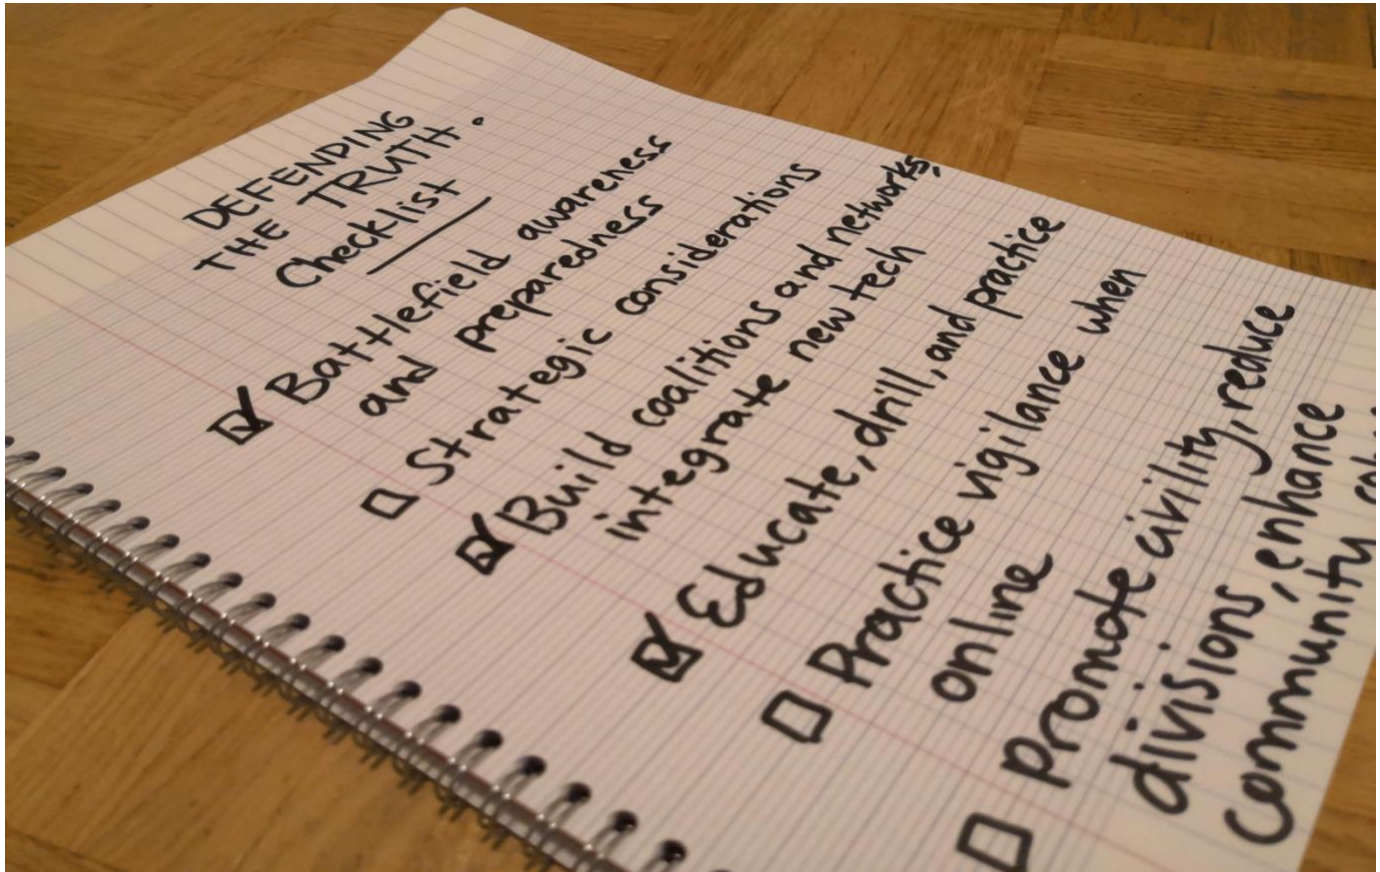 DEFENDING
THE TRUTH.
Checklist
Battlefield awareness
and preparedness
Strategic considerations
Build coalitions and networks,
integrate new tech
Educate, drill, and practice
Practice vigilance when
online
Promote civility, reduce
divisions, enhance
community